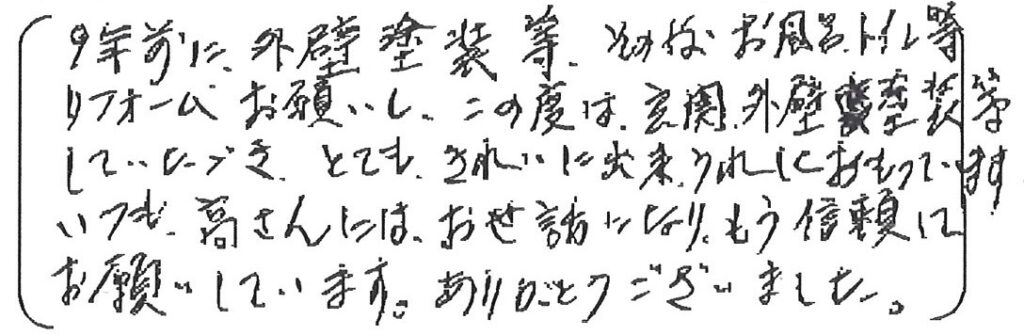 9年前に、外壁塗装等、その後お風呂、トイレ等
リフォームお願いし、この度は、玄関、外壁塗装等
していただき、とても、きれいに出来、うれしくおもっています
いつも、髙さんには、お世話になり、もう信頼して
お願いしています。ありがとうございました。